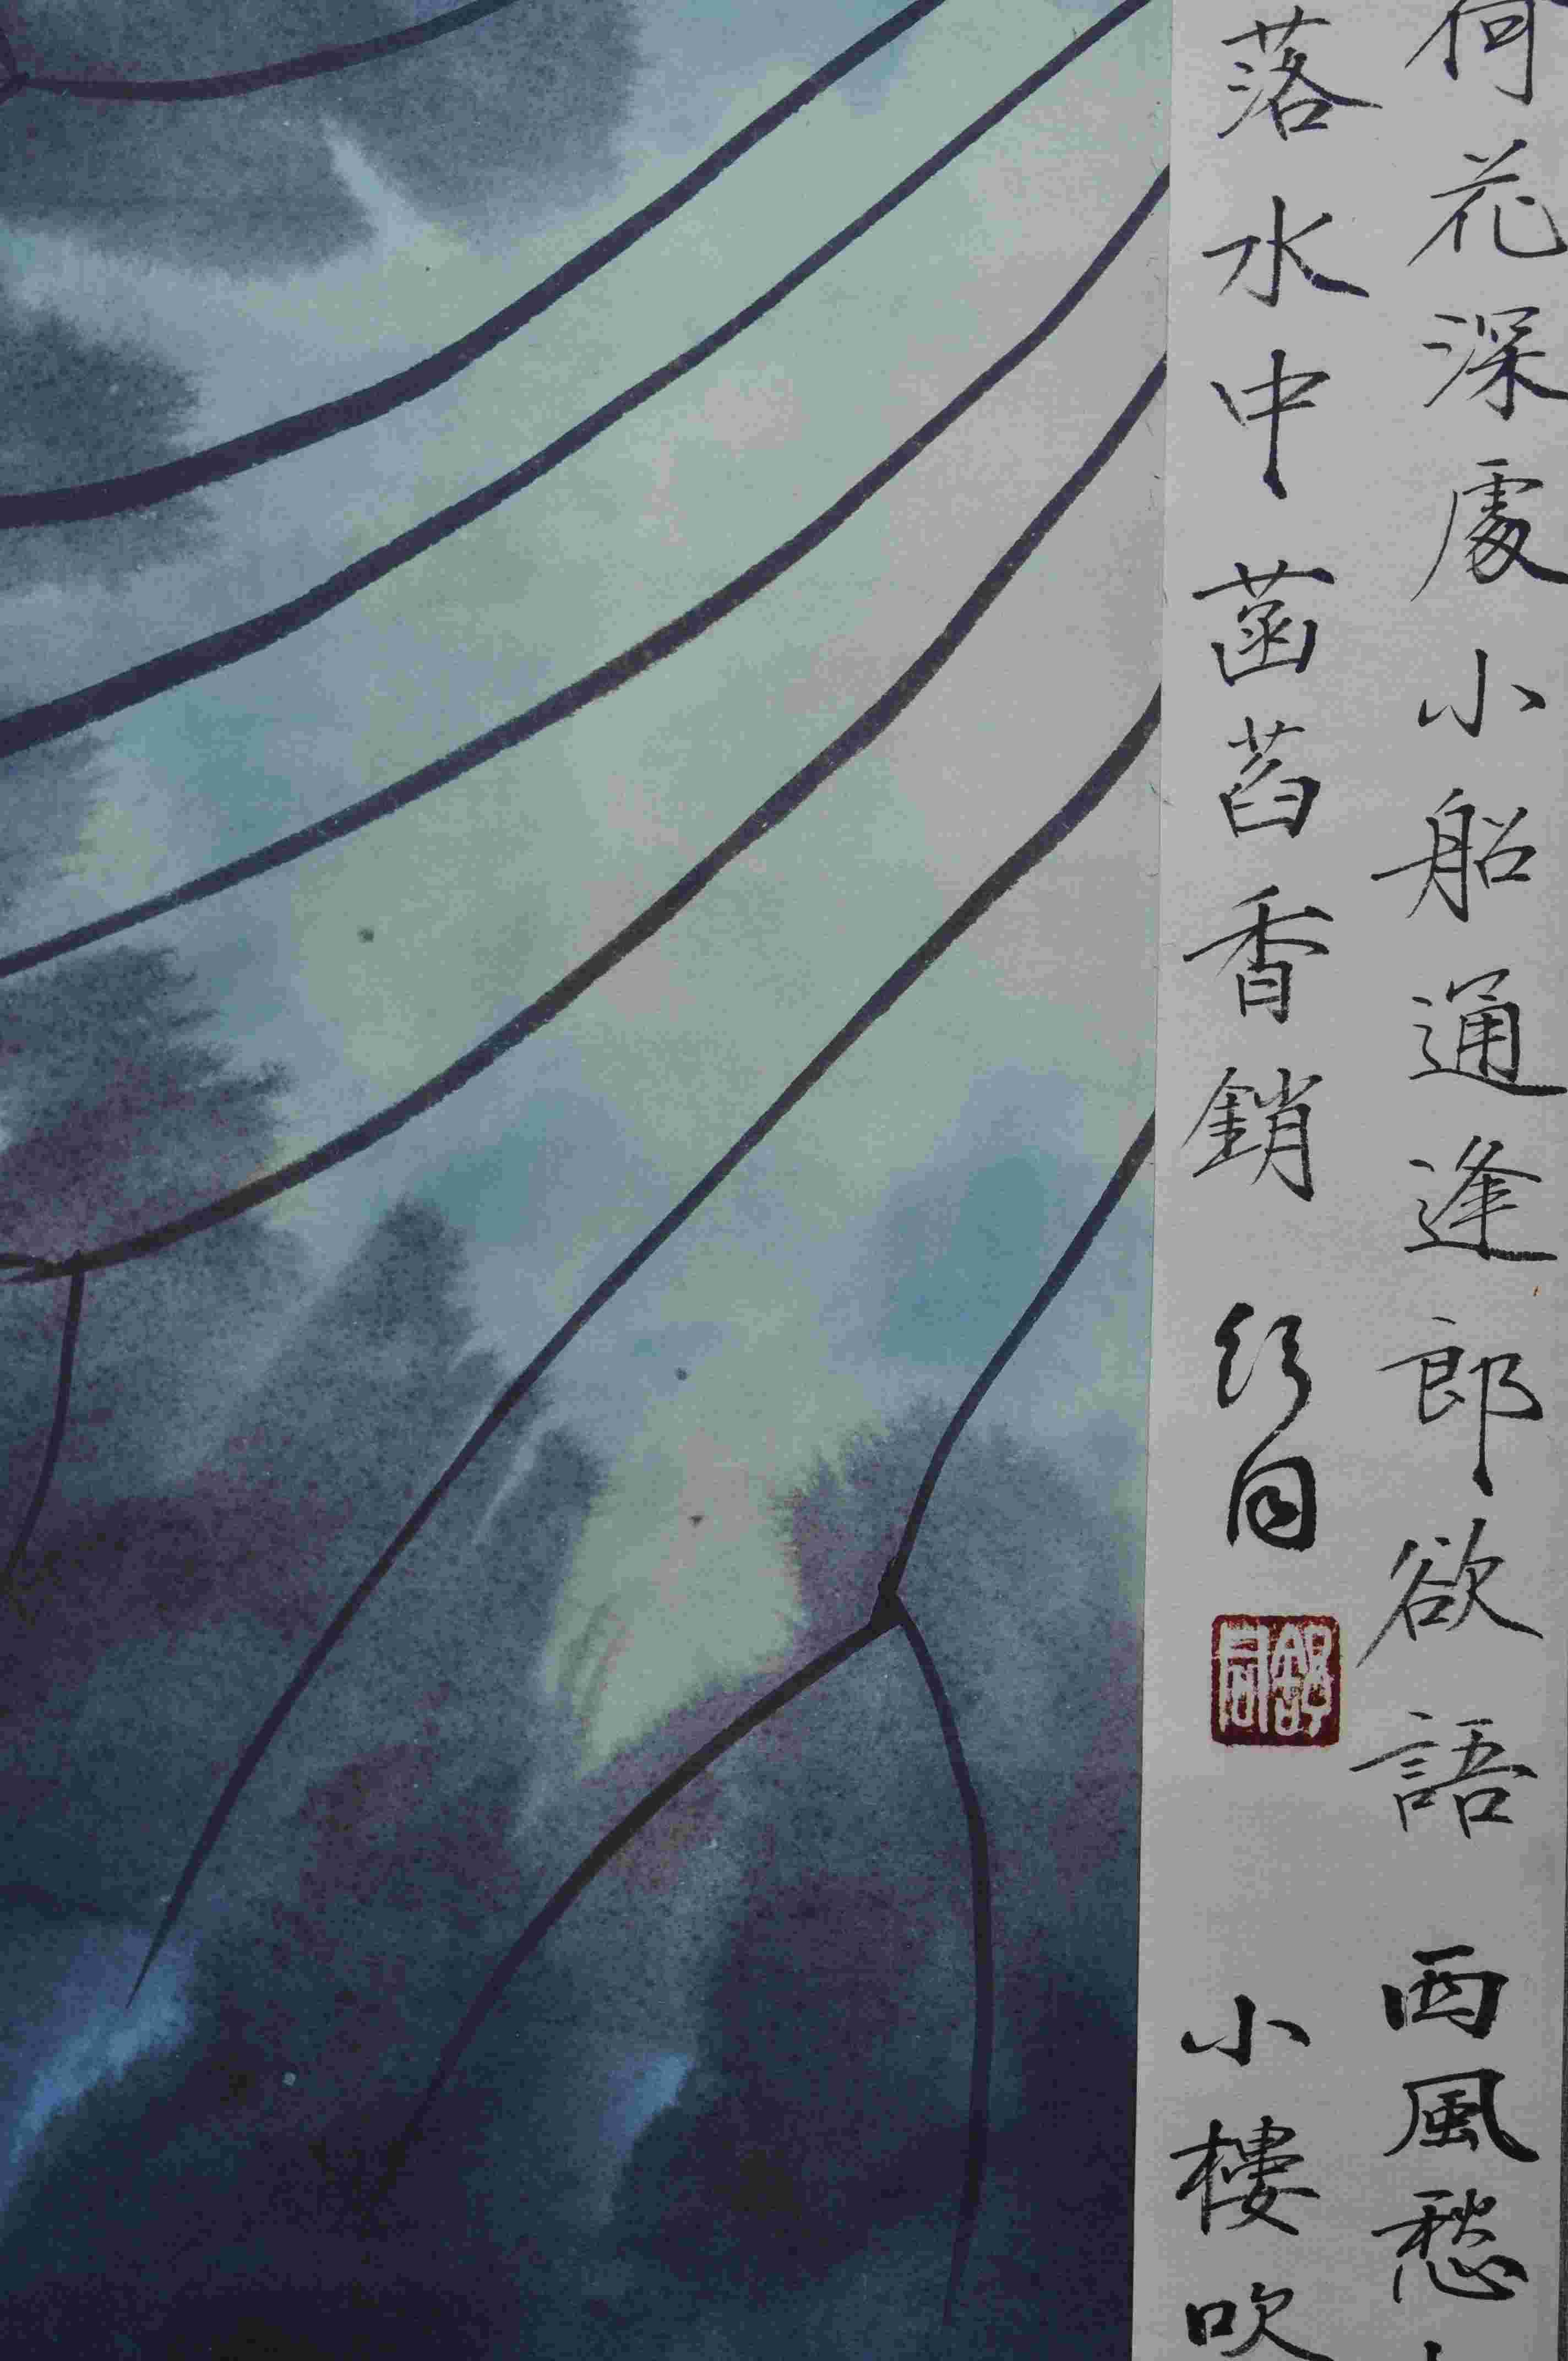 荷花深處小船通逢郎欲語 西風愁
落水中 菡萏香銷 小樓吹